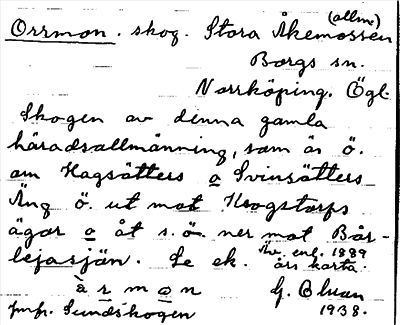 (allm.)
Orrmon. skog. Stora Åkemossen
Borgs sn.
Norrköping. Ögl.
Skogen av denna gamla
häradsallmänning, som är ö.
om Hagsätters o Svinsätters
Äng ö. ut mot Krogstorps
ägor o åt s.ö. ner mot Bår-
lejasjön. Se ek. enl. 1889
års karta.
à r m o n G.
jmfr. Sundskogen 1938.